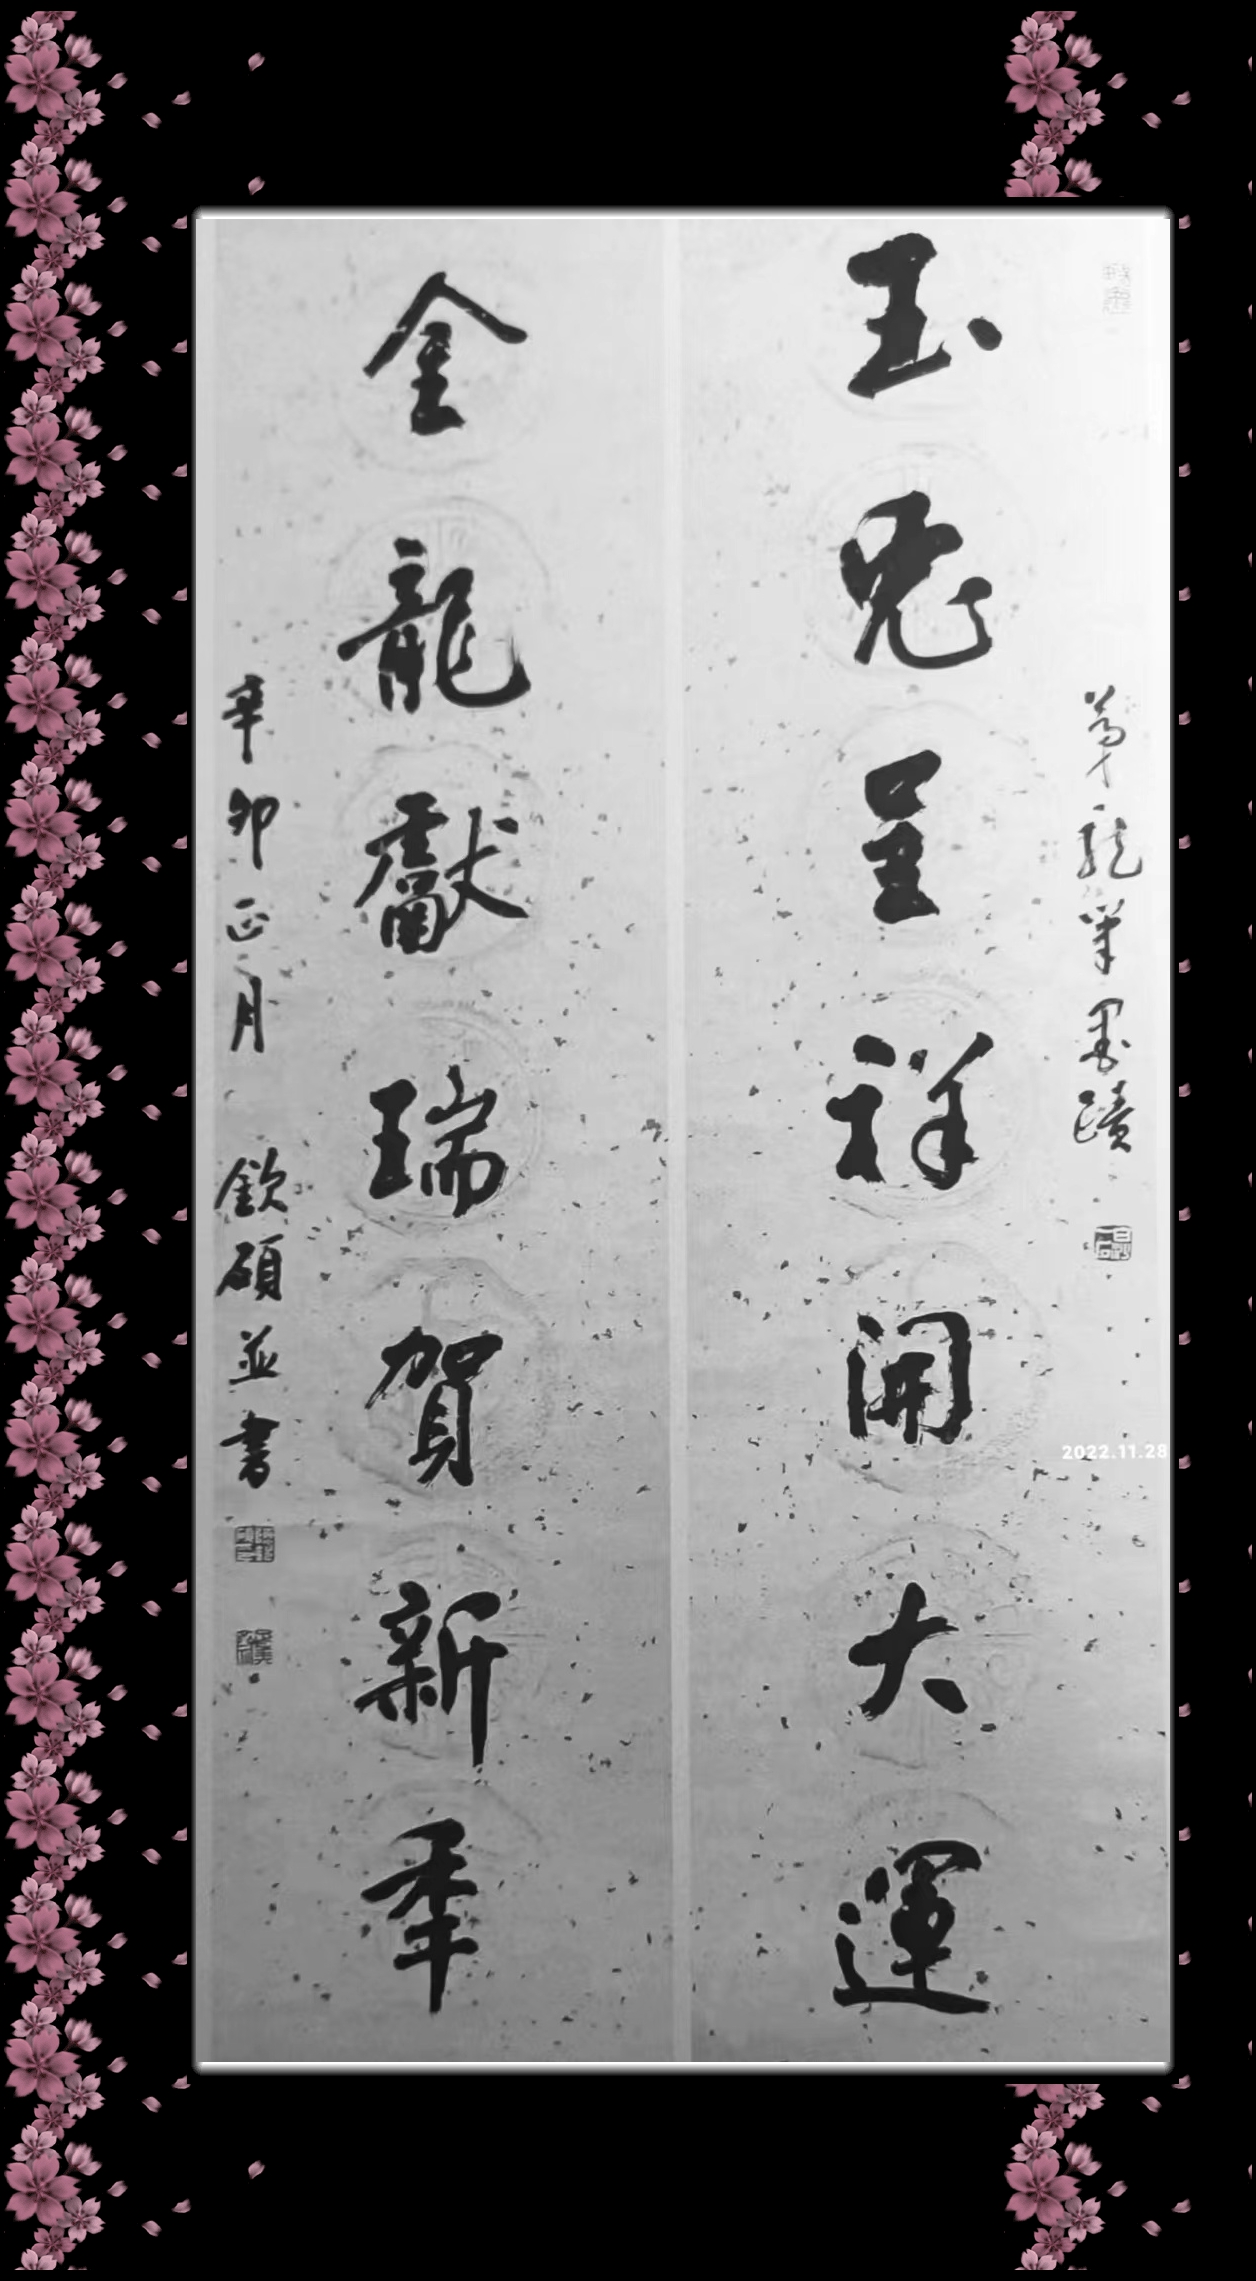 玉兔呈祥開大運
龍筆墨蹟
金龍獻瑞賀新年
辛卯正月 欽碩並書
2022.11.28